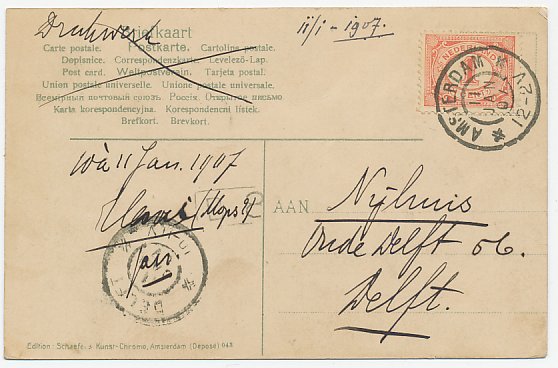 Drukwerk
11/1 - 1907.
Briefkaart
Carte postale. Postkarte. Cartolina postale.
Dopisnice. Correspondenzkarte. Levelező-Lap.
Post card. Weltpostverein. Tarjeta postal.
Union postale universelle. Unione postale universale.
Всемірный почтовый союзъ. Россія. Открытое письмо.
Karta korespondencyjna. Korespondenční lístek.
Brefkort. Brevkort.
AMSTERDAM
NEDERLAND
11 Jan. 1907
AAN
Nijhuis
Oude Delft 06.
Delft.
Jan.
DELFT
Edition: Schaefer's Kunst-Chromo, Amsterdam (Deposé) 943